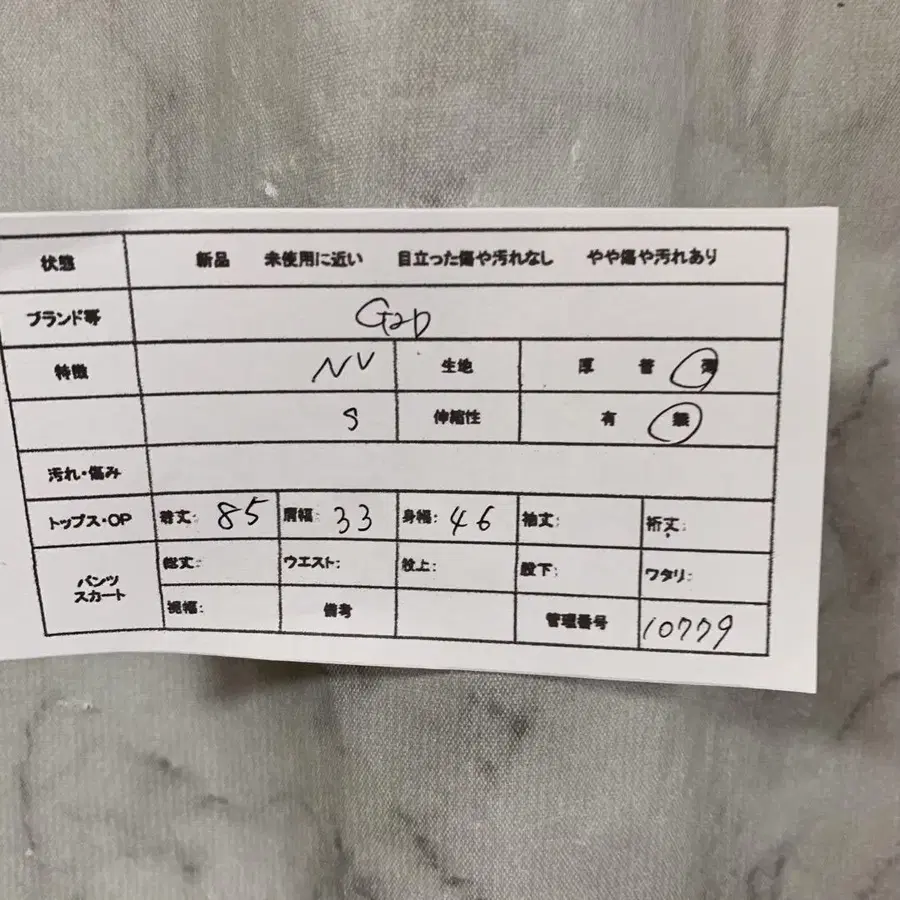 状態 新品 未使用に近い 目立った傷や汚れなし やや傷や汚れあり
ブランド等 G2D
特徴 NV 生地 厚 普 薄
S 伸縮性 有 無
汚れ・傷み
トップス・OP 着丈: 85 肩幅: 33 身幅: 46 袖丈: 裄丈:
パンツ スカート 総丈: ウエスト: 股上: 股下: ワタリ:
裾幅: 備考 管理番号 10779